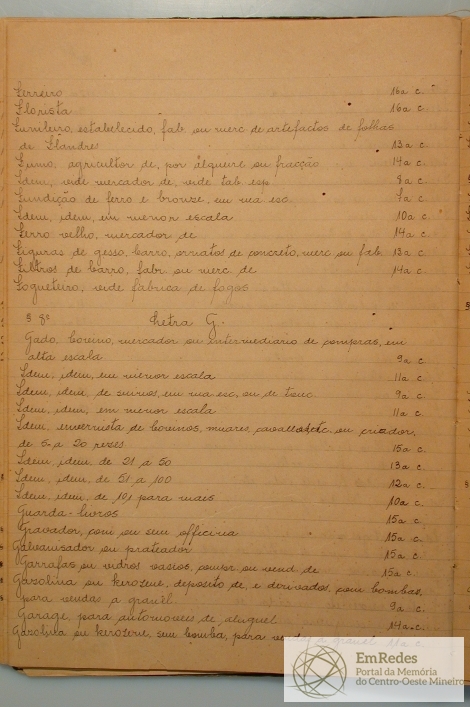 Ferreiro 16a c.
Florista 16a c.
Funileiro, estabelecido, fab. ou merc. de artefactos de folhas
de Flandres 13a c.
Fumo, agricultor de, por alqueire ou fracção 14a c.
Idem, vide mercador de, vide tab. esp. 8a c.
Fundição de ferro e bronze, em ma esc. 7a c.
Idem, idem, em menor escala 10a c.
Ferro velho, mercador de 14a c.
Figuras de gesso, barro, ornatos de concreto, merc ou fab. 13a c.
Filtros de barro, fabr. ou merc. de 14a c.
Fogueteiro, vide fabrica de fogos
§ 8º Letra G.
Gado, bovino, mercador ou intermediario de compras, em
alta escala 9a c.
Idem, idem, em menor escala 11a c.
Idem, idem, de suinos, em ma esc. ou de touc. 9a c.
Idem, idem, em menor escala 11a c.
Idem, invernista de bovinos, muares, cavallos, etc. ou criador,
de 5 a 20 rezes 15a c.
Idem, idem, de 21 a 50 13a c.
Idem, idem, de 51 a 100 12a c.
Idem, idem, de 101 para mais 10a c.
Guarda-livros 15a c.
Gravador, com ou sem officina 15a c.
Galvanisador ou prateador 15a c.
Garrafas ou vidros vasios, compr. ou vend. de 15a c.
Gasolina ou kerozene, deposito de, e derivados, com bombas,
para vendas a granél 9a c.
Garage, para automoveis de aluguel 14a c.
Gasolina ou kerozene, sem bomba, para venda a granél 11a c.
EmRedes
Portal da Memória
do Centro-Oeste Mineiro